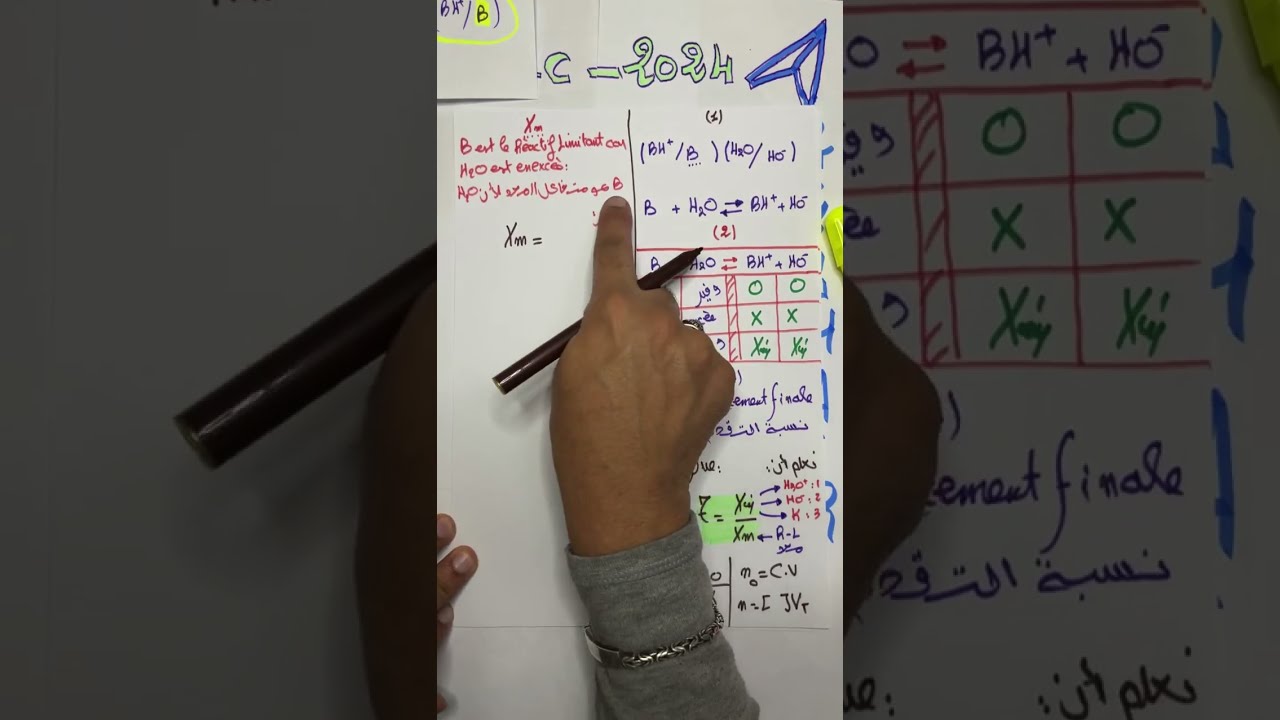 BH⁺/B)
-C - 2024
Xm
B est le Réactif Limitant car
H₂O est en excès:
B هو متفاعل المحد لأن H₂O
Xm =
(1)
(BH⁺/B) (H₂O/HO⁻)
B + H₂O ⇌ BH⁺ + HO⁻
(2)
B H₂O ⇌ BH⁺ + HO⁻
وفير O O
X X
Xéq Xéq
)
cement finale
نسبة التقد
نعلم أن:
τ = Xéq / Xm
H₃O⁺ : 1
HO⁻ : 2
K : 3
R-L
محد
n₀ = C.V
n = [ ]V_T
O ⇌ BH⁺ + HO⁻
O O
X X
Xéq Xéq
)
cement finale
نسبة التقد
نعلم أن: